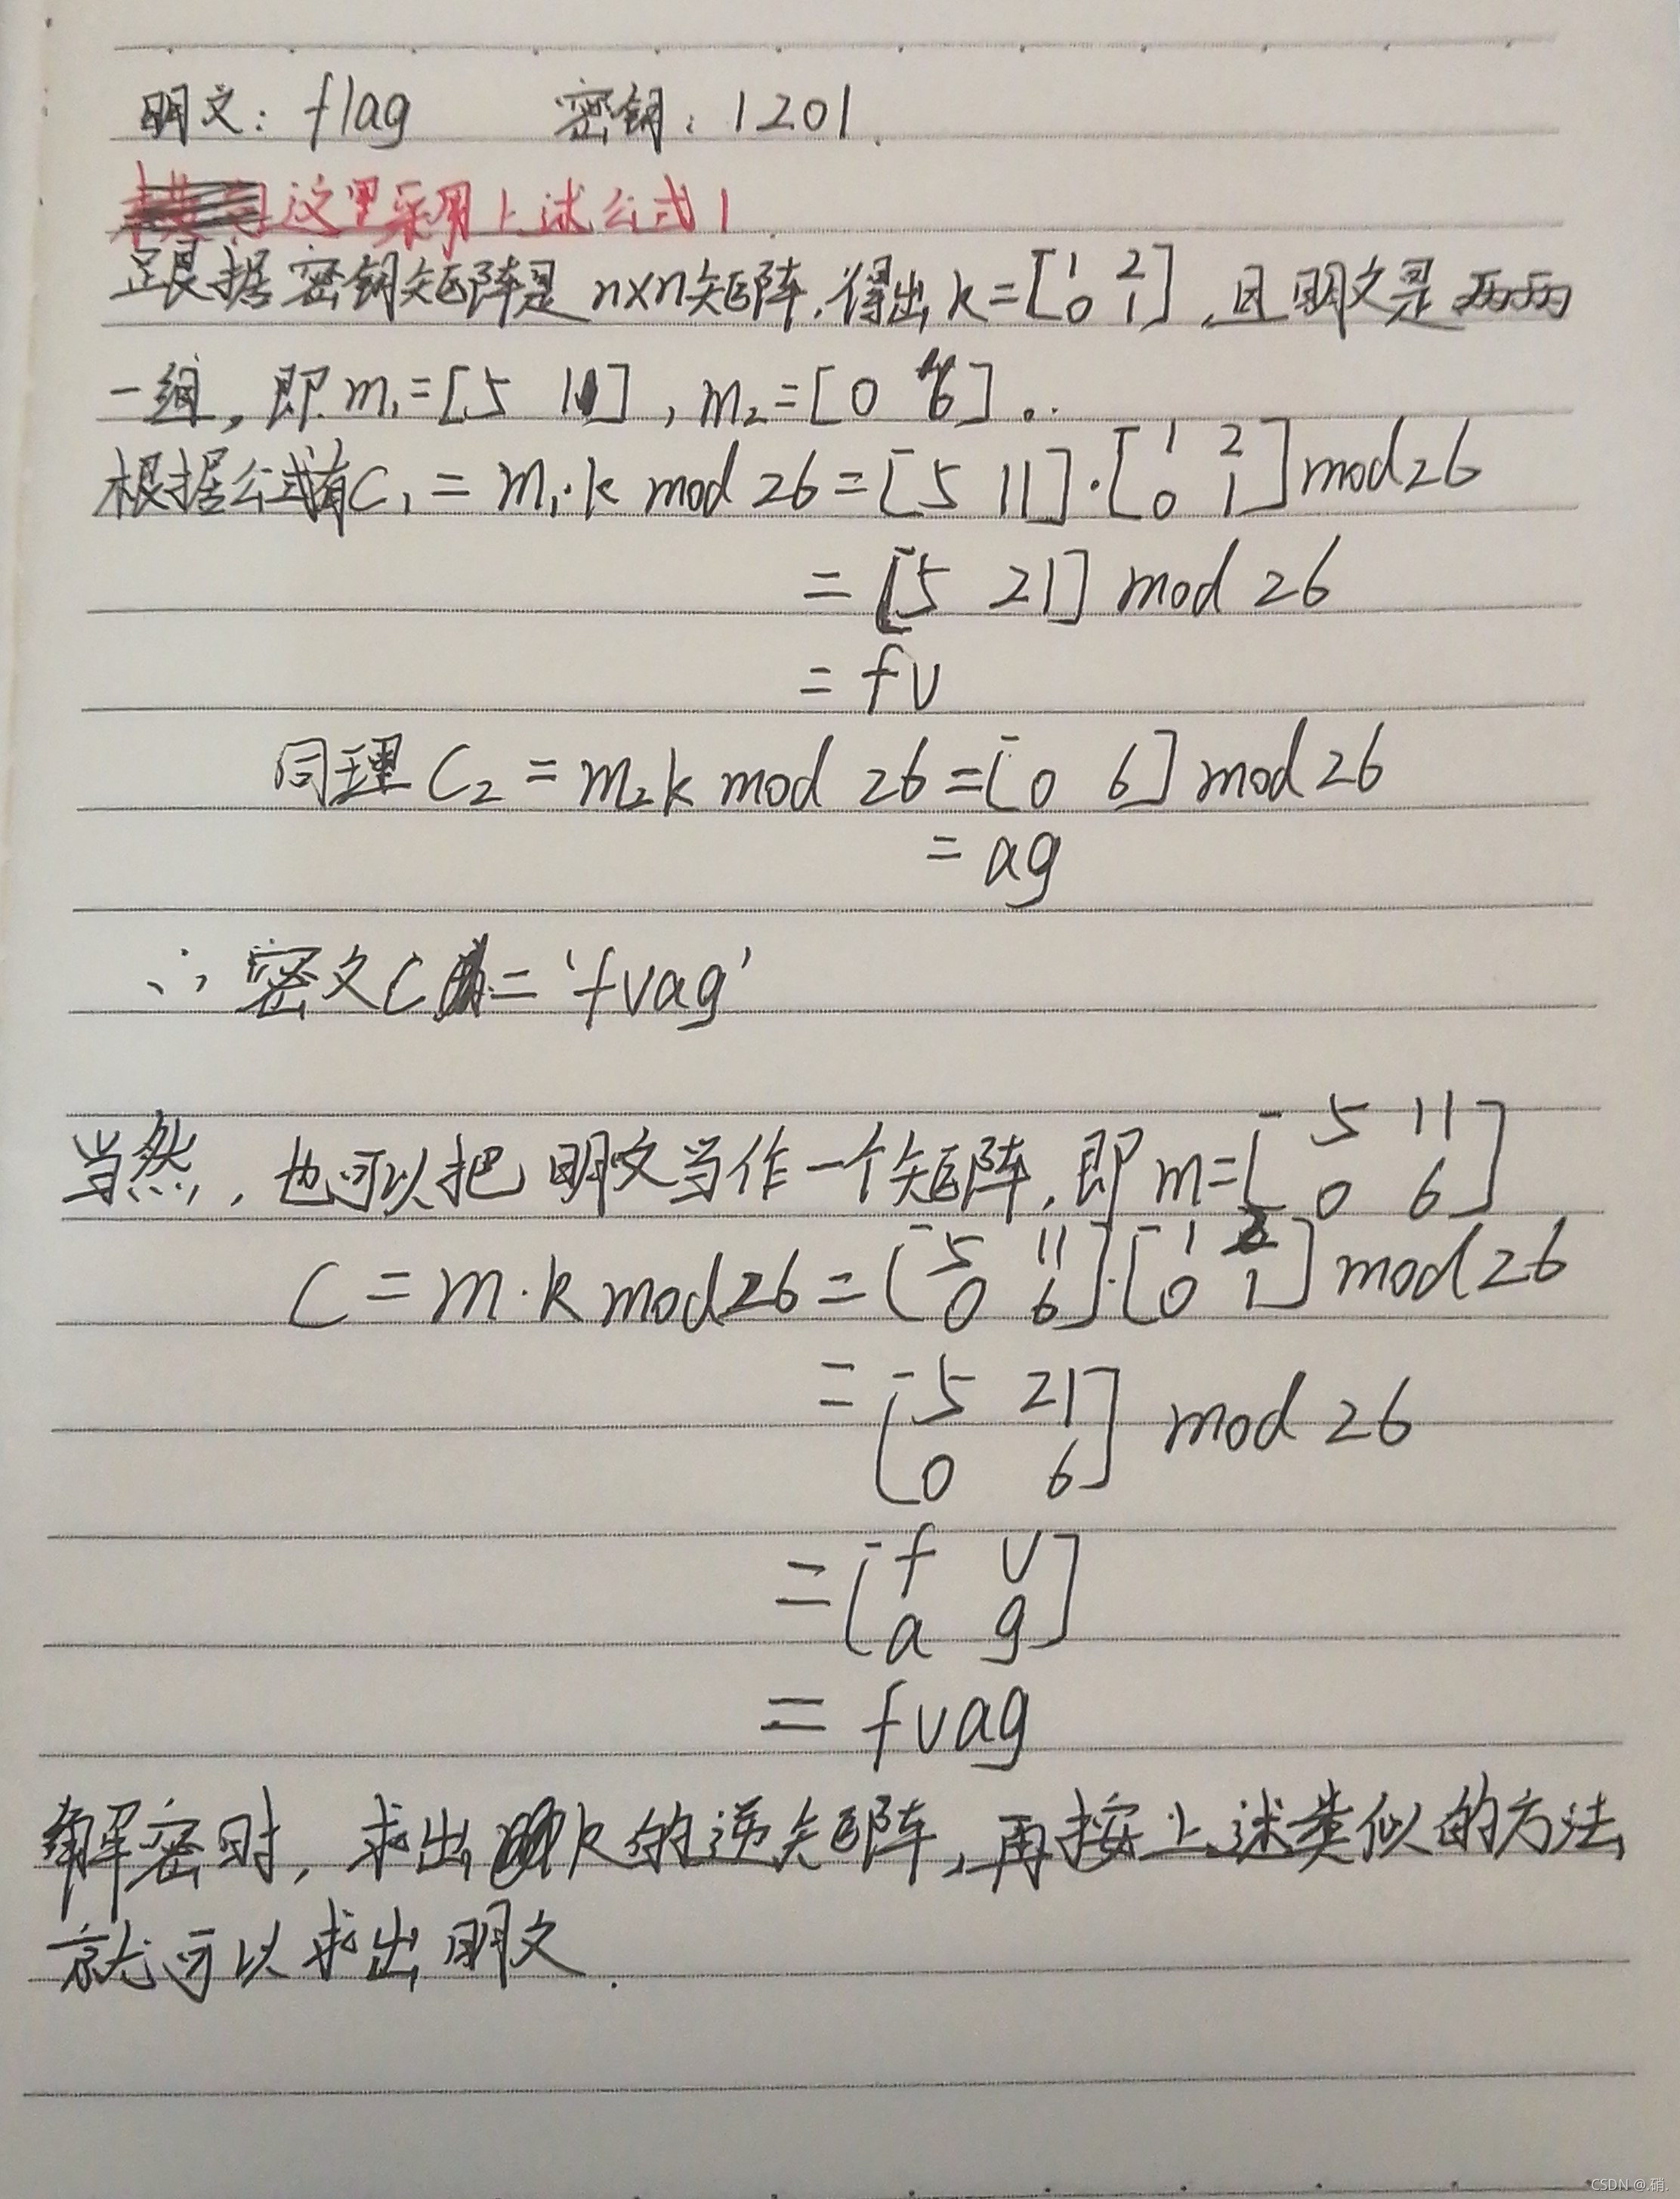 明文：flag 密钥：1201.
这里采用上述公式1.
跟据密钥矩阵是n×n矩阵,得出k=[1 2
0 1],且明文是两两
一组,即m₁=[5 11],m₂=[0 6]。
根据公式有C₁=m₁·k mod 26=[5 11]·[1 2
0 1]mod26
=[5 21] mod 26
=fv
同理C₂=m₂k mod 26=[0 6]mod26
=ag
∴密文C='fvag'
当然,也可以把明文当作一个矩阵,即m=[5 11
0 6]
C=m·k mod26=[5 11
0 6]·[1 2
0 1]mod26
=[5 21
0 6] mod 26
=[f v
a g]
=fvag
解密时,求出k的逆矩阵,再按上述类似的方法
就可以求出明文.
CSDN @.硝.